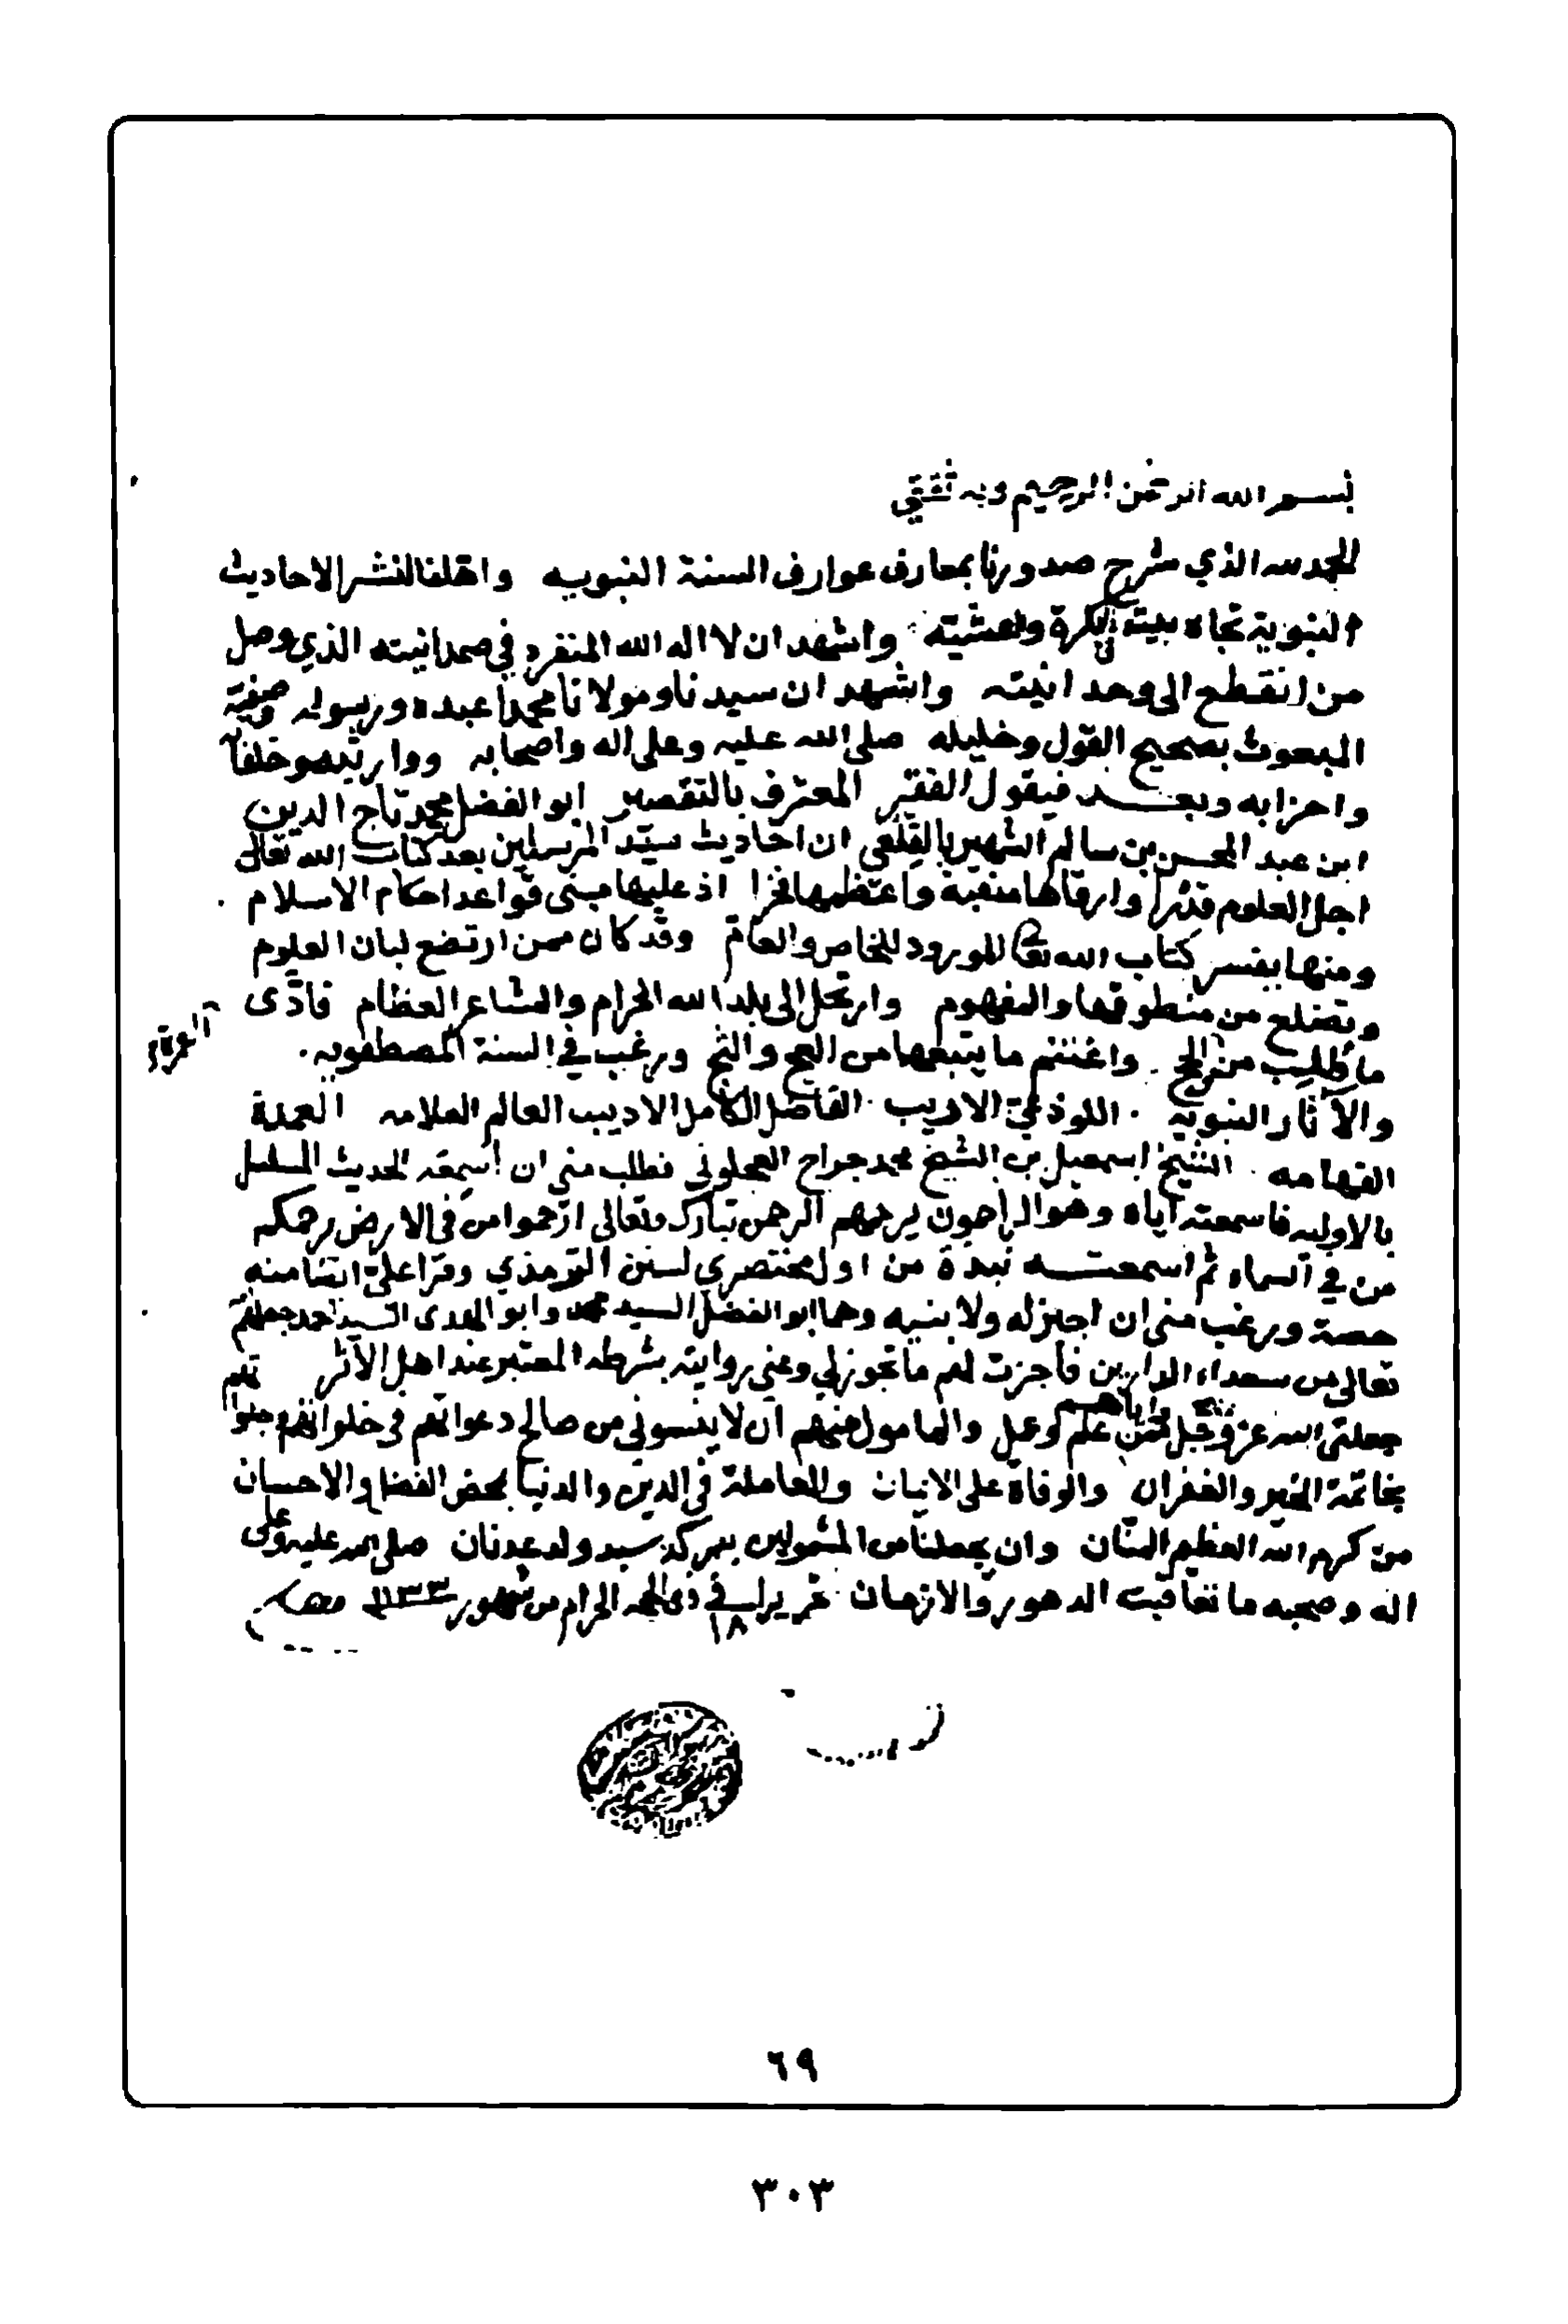 بسم الله الرحمن الرحيم وبه ثقتي
الحمد لله الذي شرح صدورنا بمعارف عوارف السنة النبويه واهلنا لنشر الاحاديث
النبوية تجاه بيته في بكرة وعشيته واشهد ان لا اله الا الله المنفرد في صمدانيته الذي وصل
من انقطع الى وحدانيته واشهد ان سيدنا ومولانا محمدا عبده ورسوله وصفيه
المبعوث بصحيح القول وخليله صلى الله عليه وعلى اله واصحابه ووارثيه وخلفا
واحزابه وبعد فيقول الفقير المعترف بالتقصير ابو الفضل محمد تاج الدين
ابن عبد المحسن بن سالم الشهير بالقلعي ان احاديث سيد المرسلين بعد كتاب الله تعالى
اجل العلوم قدرا وارقاها منقبة واعظمها فخرا اذ عليها مبنى قواعد احكام الاسلام
ومنها يفسر كتاب الله تعالى للورود للخاص والعام وقد كان ممن ارتضع لبان العلوم
وتضلع من منطوقها والمفهوم وارتحل الى بلد الله الحرام والمشاعر العظام فادى
ما طلب من الحج واغتنم ما يتبعها من العج والثج ورغب في السنة المصطفويه
والآثار النبويه اللوذعي الاريب الفاضل الكامل الاديب العالم العلامه العمدة
الفهامه الشيخ اسمعيل بن الشيخ محمد جراح العجلوني فطلب مني ان اسمعه الحديث المسلسل
بالاوليه فاسمعته اياه وهو الراحمون يرحمهم الرحمن تبارك وتعالى ارحموا من في الارض يرحمكم
من في السماء ثم اسمعته نبذة من اول مختصري لسنن الترمذي وقرا علي ايضا منه
حصة ورغب مني ان اجيز له ولابنيه وهما ابو الفضل السيد محمد وابو الهدى السيد احمد جعلهم
تعالى من سعداء الدارين فاجزت لهم ما تجوز لي وعني روايته بشرطه المعتبر عند اهل الآثر
جعلني الله عز وجل واياهم ممن علم وعمل والمامول منهم ان لا ينسوني من صالح دعواتهم في خلواتهم وجلوا
بخاتمة الخير والغفران والوفاة على الايمان والمعاملة في الدين والدنيا بمحض الفضل والاحسان
من كرم الله العظيم المنان وان يجعلنا من المشمولين ببركة سيد ولد عدنان صلى الله عليه وعلى
اله وصحبه ما تعاقبت الدهور والازمان تحريرا في ١٨ ذي الحجه الحرام من شهور ١١٣٣
٦٩
٣٠٣